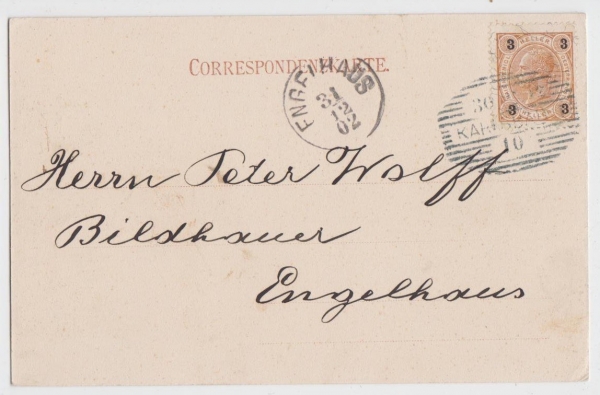 CORRESPONDENZKARTE.
ENGELHAUS
31
12
02
3 3
HELLER
3 3
30
10
Herrn Peter Wolff
Bildhauer
Engelhaus